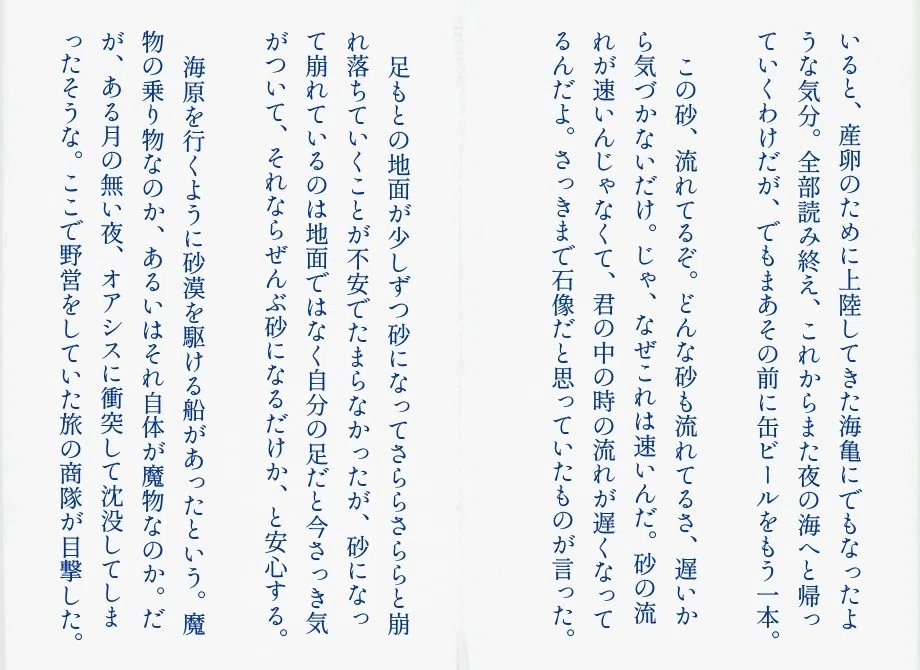 いると、産卵のために上陸してきた海亀にでもなったよ
うな気分。全部読み終え、これからまた夜の海へと帰っ
ていくわけだが、でもまあその前に缶ビールをもう一本。
この砂、流れてるぞ。どんな砂も流れてるさ、遅いか
ら気づかないだけ。じゃ、なぜこれは速いんだ。砂の流
れが速いんじゃなくて、君の中の時の流れが遅くなって
るんだよ。さっきまで石像だと思っていたものが言った。
足もとの地面が少しずつ砂になってさららさららと崩
れ落ちていくことが不安でたまらなかったが、砂になっ
て崩れているのは地面ではなく自分の足だと今さっき気
がついて、それならぜんぶ砂になるだけか、と安心する。
海原を行くように砂漠を駆ける船があったという。魔
物の乗り物なのか、あるいはそれ自体が魔物なのか。だ
が、ある月の無い夜、オアシスに衝突して沈没してしま
ったそうな。ここで野営をしていた旅の商隊が目撃した。